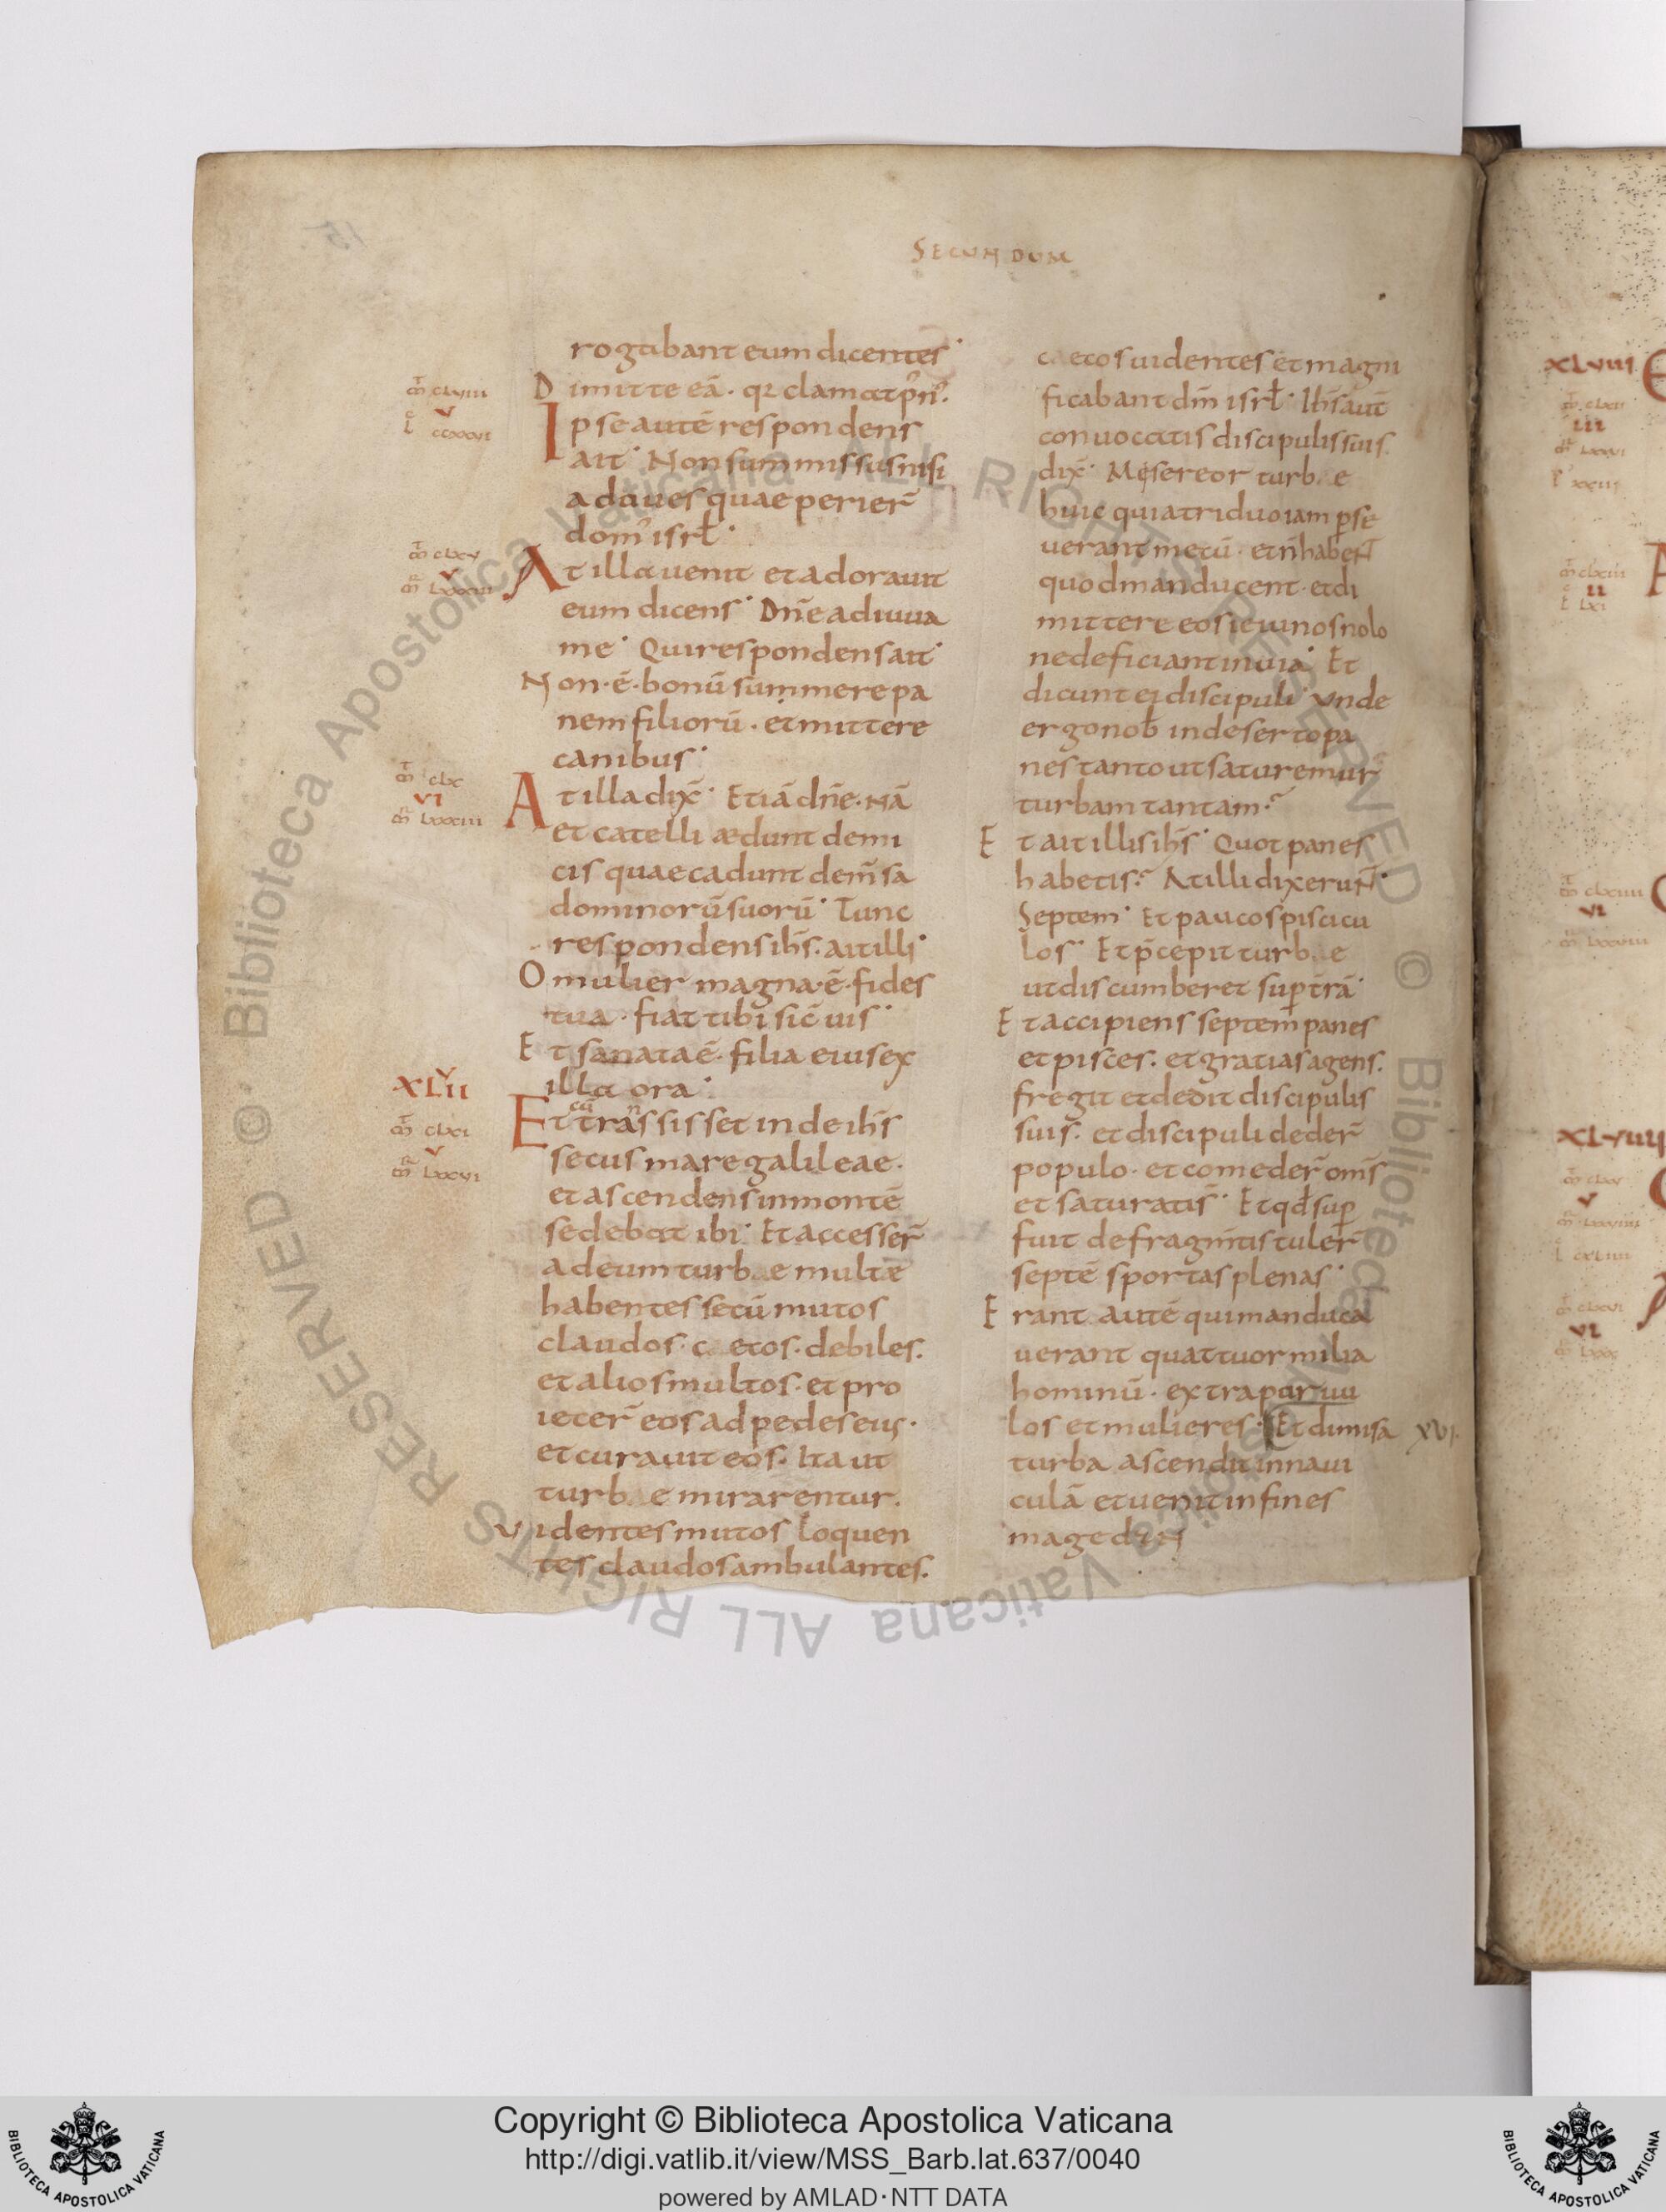 SECUNDUM
rogabant eum dicentes·
Dimitte eā· qꝛ clamat p̄ n̄·
Ipse autē respondens
ait· Non sum missus nisi
ad oues quae perier̄
dom' isrl̄·
At illa uenit et adorauit
eum dicens· Dn̄e adiuua
me· Qui respondens ait·
Non·ē·bonū summere pa
nem filiorū· et mittere
canibus·
At illa dix̄· Etiā dn̄e· nā
et catelli ædunt demi
cis quae cadunt de m̄sa
dominorū suorū· Tunc
respondens ihs̄· ait illi·
O mulier magna·ē·fides
tua· fiat tibi sic̄ uis·
Et sanata ē· filia eius ex
illa ora·
Et cū transsisset inde ihs̄
secus mare galileae·
et ascendens in montē
sedebat ibi· Et accesser̄
ad eum turbae multe
habentes secū mutos
claudos· caecos· debiles·
et alios multos· et pro
iecer̄ eos ad pedes eius·
et curauit eos· Ita ut
turbae mirarentur·
Uidentes mutos loquen
tes claudos ambulantes·
caecos uidentes et magni
ficabant dm̄ isrl̄· Ihs̄ aut̄
conuocatis discipulis suis·
dix̄· Misereor turbae
huic quia triduo iam ꝑse
uerant mecū· et n̄ habent
quod manducent· et di
mittere eos ieiunos nolo
ne deficiant in uia· Et
dicunt ei discipuli· Unde
ergo nob̄ in deserto pa
nes tanto ut saturemur
turbam tantam·
Et ait illis ihs̄· Quot panes
habetis· At illi dixerunt·
Septem· Et paucos piscicu
los· Et p̄cepit turbae
ut discumberet suꝑ trā·
Et accipiens septem panes
et pisces· et gratias agens·
fregit et dedit discipulis
suis· et discipuli deder̄
populo· et comeder̄ om̄s
et saturati s̄· Et qd̄ suꝑ
fuit de fragm̄tis tuler̄
septē sportas plenas·
Erant autē qui manduca
uerant quattuor milia
hominū· extra paruu
los et mulieres· Et dimisa XVI·
turba ascendit in naui
culā et uenit in fines
magedan
XLVII
XLVIII
XLVIIII
Copyright © Biblioteca Apostolica Vaticana
http://digi.vatlib.it/view/MSS_Barb.lat.637/0040
powered by AMLAD·NTT DATA
BIBLIOTECA APOSTOLICA VATICANA
BIBLIOTECA APOSTOLICA VATICANA